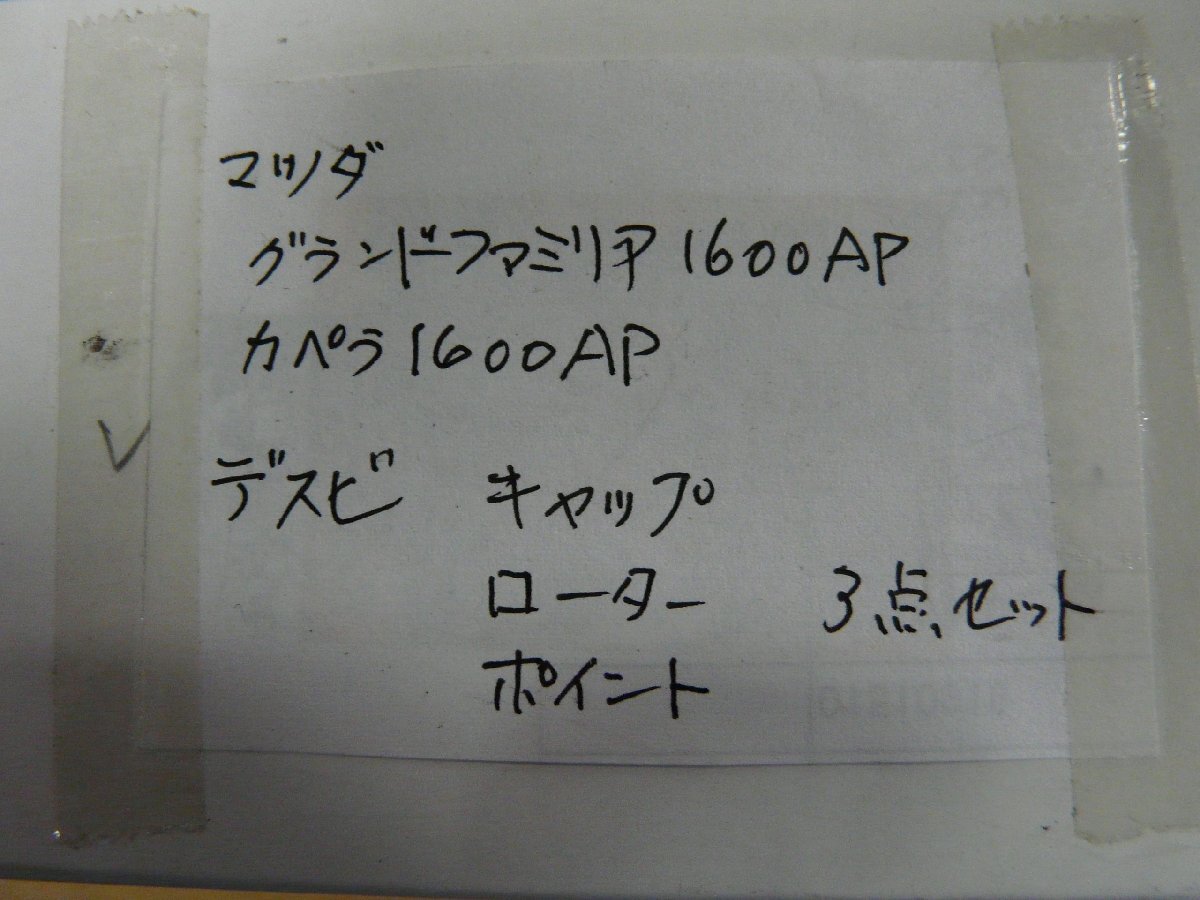 マツダ
グランドファミリア1600AP
カペラ1600AP
デスビ キャップ
ローター 3点セット
ポイント